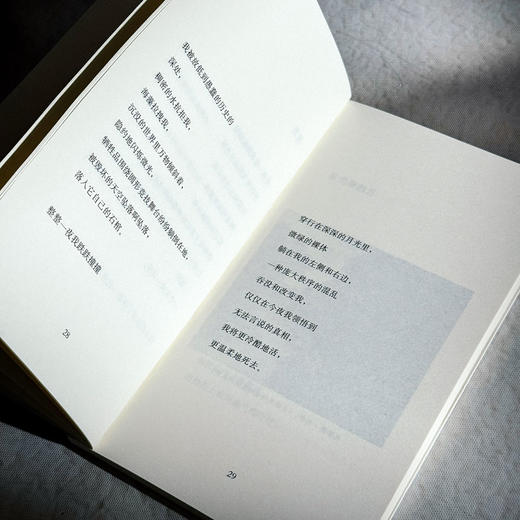 我被放低到愚蠢的历史的
深处，
稠密的水抗拒我，
海藻拉拽我，
沉没的世界里万物倾斜着，
隐约地闪烁微光，
牺牲品围绕圆形竞技舞台纷纷躺倒在地，
被毁坏的天空坠落啊坠落，
落入它自己的石棺。
整整一夜我跌跌撞撞
28
穿行在深深的月光里，
微绿的裸体
躺在我的左侧和右边，
一种庞大秩序的混乱
吞没和改变我，
仅仅在今夜我领悟到
无法言说的真相，
我将更冷酷地活，
更温柔地死去。
29